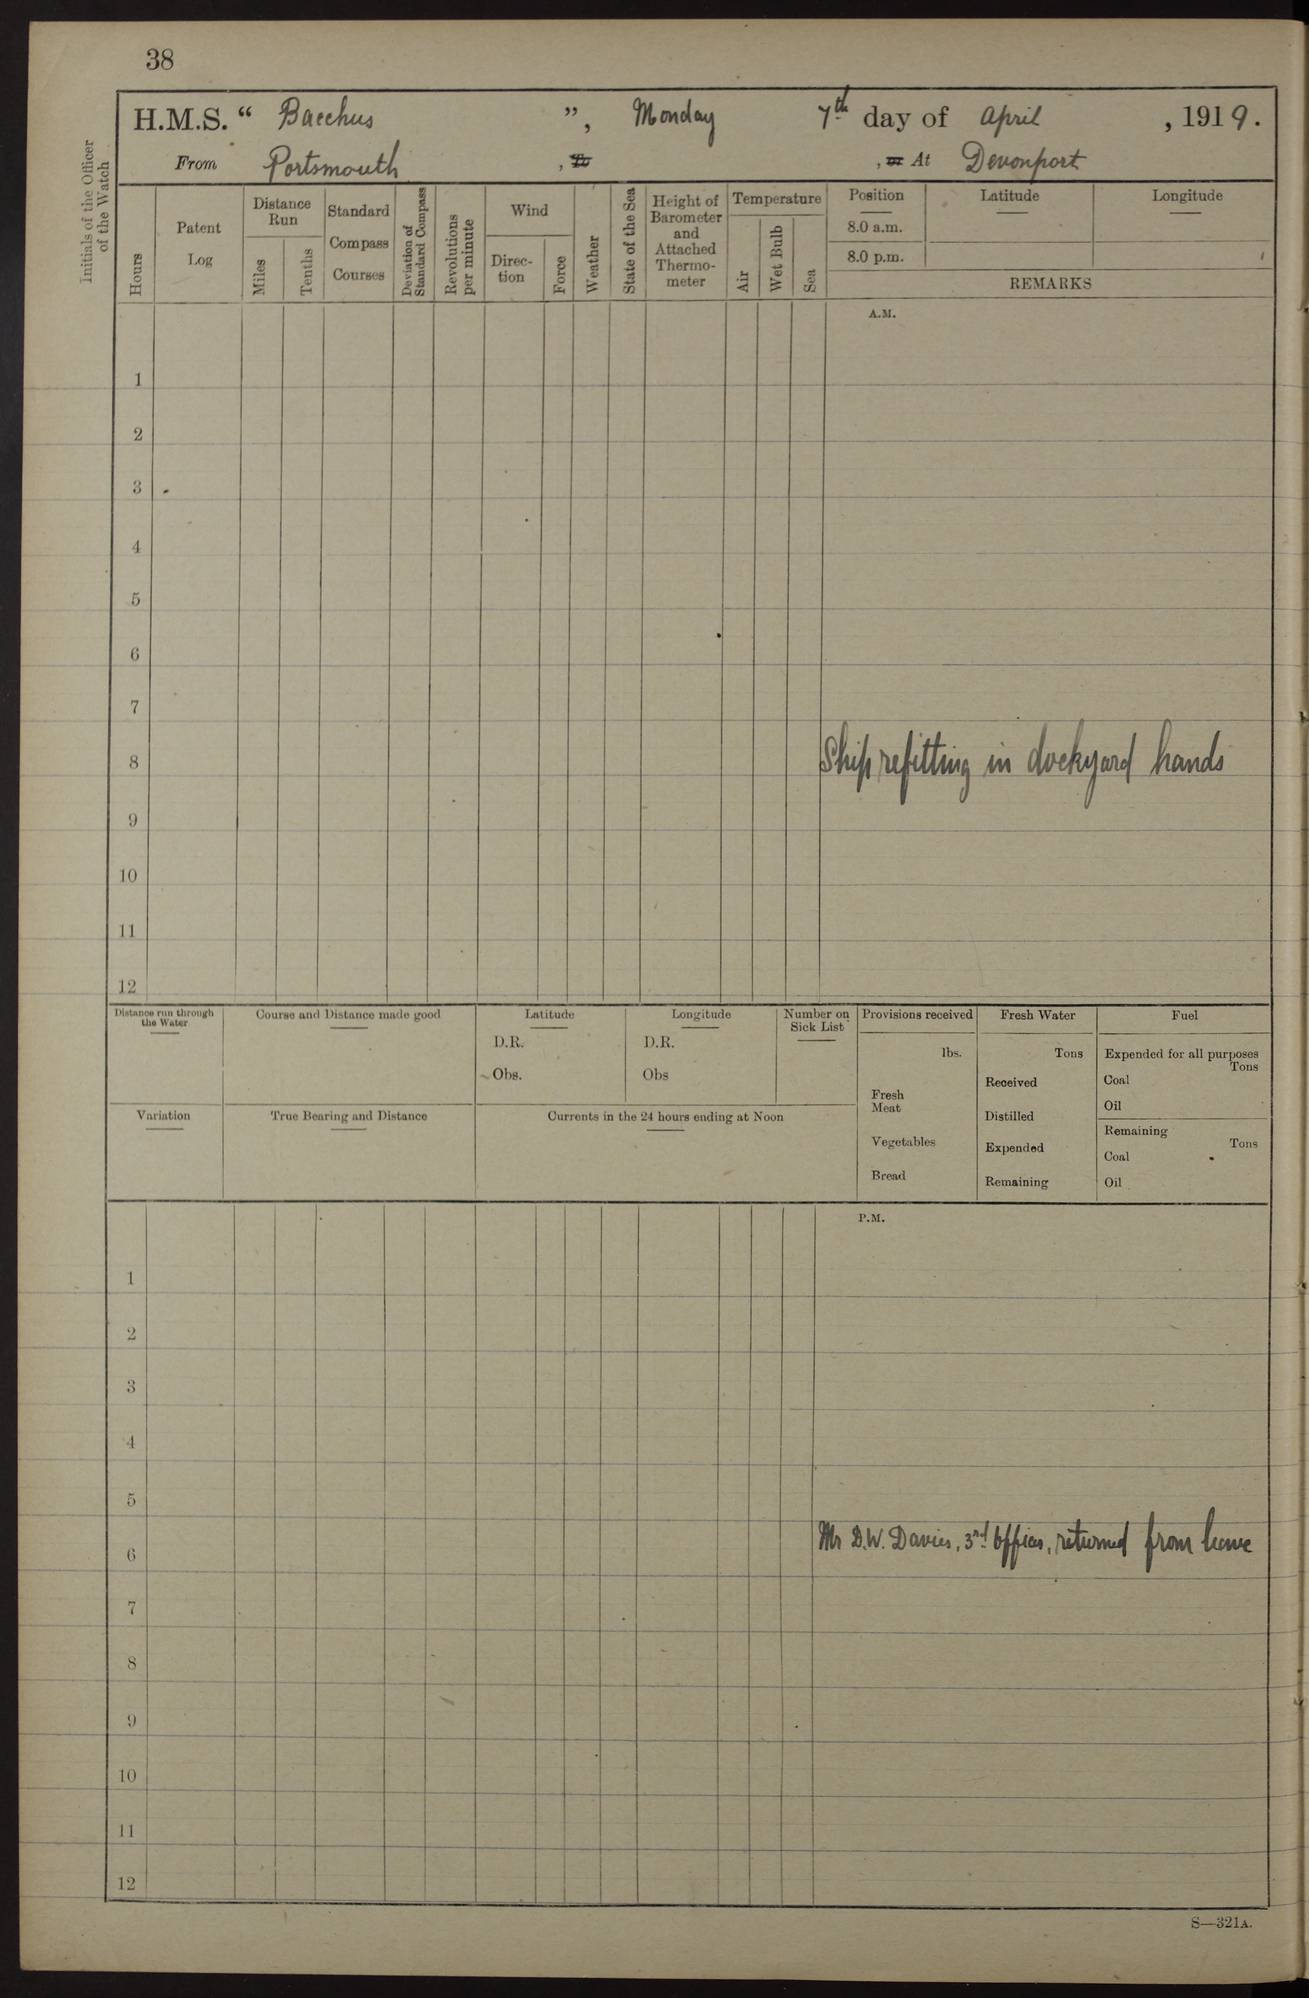 38
H.M.S. “ Bacchus ”, Monday 7th day of April , 1919.
From Portsmouth , To , or At Devonport
Initials of the Officer
of the Watch
Hours
Patent
Log
Distance
Run
Miles
Tenths
Standard
Compass
Courses
Deviation of
Standard Compass
Revolutions
per minute
Wind
Direc-
tion
Force
Weather
State of the Sea
Height of
Barometer
and
Attached
Thermo-
meter
Temperature
Air
Wet Bulb
Sea
Position
Latitude
Longitude
8.0 a.m.
8.0 p.m.
REMARKS
A.M.
1
2
3
4
5
6
7
8 Ship refitting in dockyard hands
9
10
11
12
Distance run through
the Water
Course and Distance made good
Latitude
D.R.
Obs.
Longitude
D.R.
Obs
Number on
Sick List
Provisions received
lbs.
Fresh
Meat
Vegetables
Bread
Fresh Water
Tons
Received
Distilled
Expended
Remaining
Fuel
Expended for all purposes
Tons
Coal
Oil
Remaining
Tons
Coal
Oil
Variation
True Bearing and Distance
Currents in the 24 hours ending at Noon
P.M.
1
2
3
4
5
6 Mr D.W. Davies, 3rd Officer, returned from leave
7
8
9
10
11
12
S—321A.